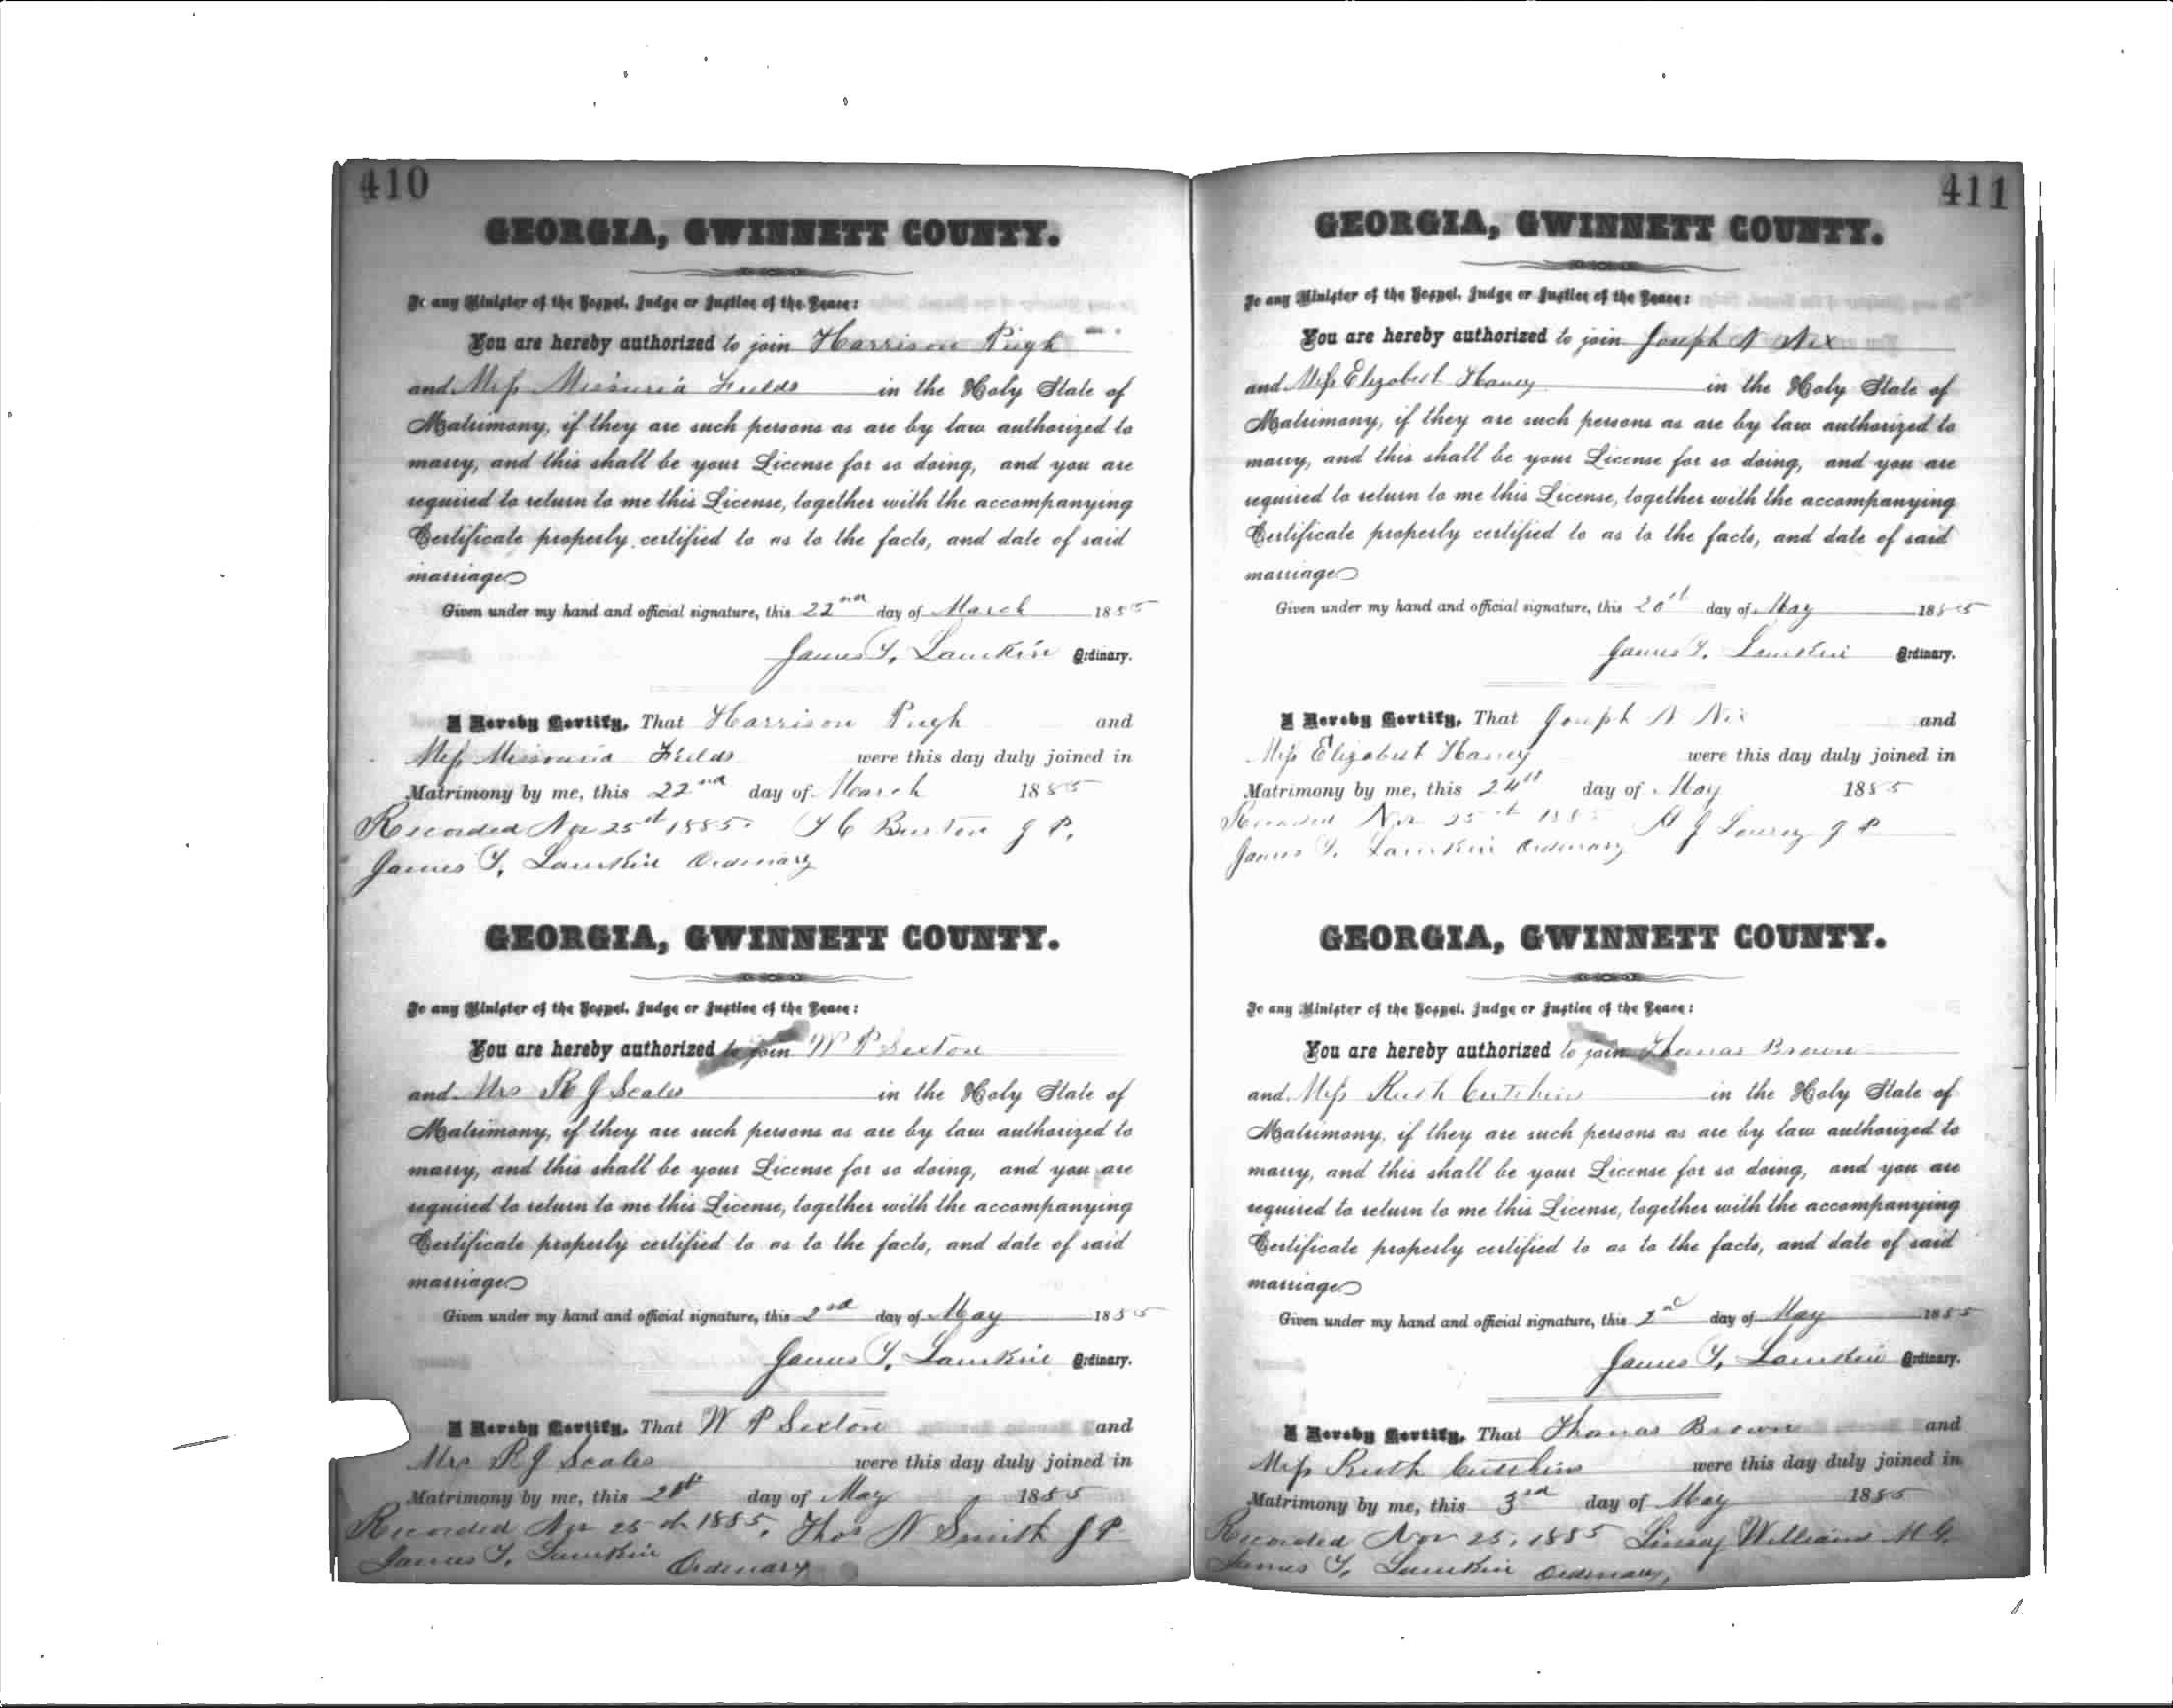 410
GEORGIA, GWINNETT COUNTY.
To any Minister of the Gospel, Judge or Justice of the Peace:
You are hereby authorized to join Harrison Pugh
and Miss Missouria Fields in the Holy State of
Matrimony, if they are such persons as are by law authorized to
marry, and this shall be your License for so doing, and you are
required to return to me this License, together with the accompanying
Certificate properly certified to as to the facts, and date of said
marriage
Given under my hand and official signature, this 22nd day of March 1885
James T. Lamkin Ordinary.
I Hereby Certify, That Harrison Pugh and
Miss Missouria Fields were this day duly joined in
Matrimony by me, this 22nd day of March 1885
Recorded Nov 25th 1885. T C Burton J P.
James T. Lamkin Ordinary
GEORGIA, GWINNETT COUNTY.
To any Minister of the Gospel, Judge or Justice of the Peace:
You are hereby authorized to join W P Sexton
and Mrs R J Scales in the Holy State of
Matrimony, if they are such persons as are by law authorized to
marry, and this shall be your License for so doing, and you are
required to return to me this License, together with the accompanying
Certificate properly certified to as to the facts, and date of said
marriage
Given under my hand and official signature, this 2nd day of May 1885
James T. Lamkin Ordinary.
I Hereby Certify, That W P Sexton and
Mrs R J Scales were this day duly joined in
Matrimony by me, this day of May 1885
Recorded Nov 25th 1885. Thos N Smith J P
James T. Lamkin Ordinary
411
GEORGIA, GWINNETT COUNTY.
To any Minister of the Gospel, Judge or Justice of the Peace:
You are hereby authorized to join Joseph N Nix
and Miss Elizabeth Haney in the Holy State of
Matrimony, if they are such persons as are by law authorized to
marry, and this shall be your License for so doing, and you are
required to return to me this License, together with the accompanying
Certificate properly certified to as to the facts, and date of said
marriage
Given under my hand and official signature, this 20th day of May 1885
James T. Lamkin Ordinary.
I Hereby Certify, That Joseph N Nix and
Miss Elizabeth Haney were this day duly joined in
Matrimony by me, this 24th day of May 1885
Recorded Nov 25th 1885 J P
James T. Lamkin Ordinary
GEORGIA, GWINNETT COUNTY.
To any Minister of the Gospel, Judge or Justice of the Peace:
You are hereby authorized to join Thomas Brown
and Miss Ruth Cutchins in the Holy State of
Matrimony, if they are such persons as are by law authorized to
marry, and this shall be your License for so doing, and you are
required to return to me this License, together with the accompanying
Certificate properly certified to as to the facts, and date of said
marriage
Given under my hand and official signature, this 2nd day of May 1885
James T. Lamkin Ordinary.
I Hereby Certify, That Thomas Brown and
Miss Ruth Cutchins were this day duly joined in
Matrimony by me, this 3rd day of May 1885
Recorded Nov 25, 1885 Linsay Williams M.G.
James T. Lamkin Ordinary,